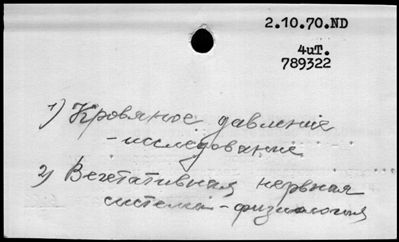 2.10.70.ND
4иТ.
789322
1) Кровяное давление
-исследование
2) Вегетативная нервная
система -физиология